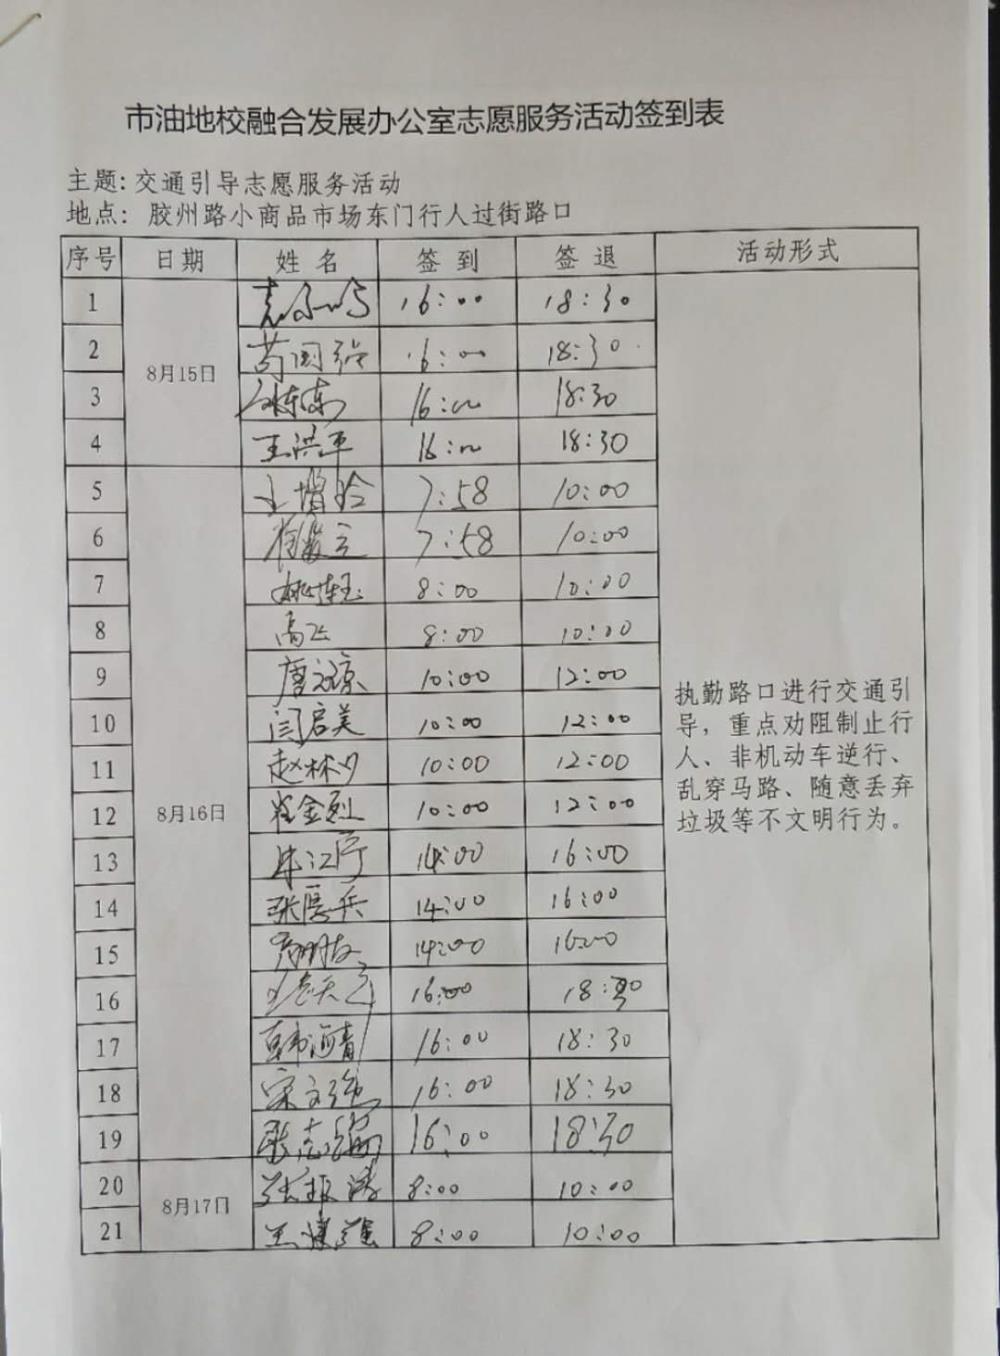 市油地校融合发展办公室志愿服务活动签到表
主题: 交通引导志愿服务活动
地点: 胶州路小商品市场东门行人过街路口
序号 日期 姓名 签到 签退 活动形式
1 16:00 18:30
2 16:00 18:30
8月15日
3 16:00 18:30
4 王洪平 16:00 18:30
5 7:58 10:00
6 7:58 10:00
7 姚连玉 8:00 10:00
8 高飞 8:00 10:00
9 10:00 12:00
10 闫启美 10:00 12:00
11 10:00 12:00
12 崔金烈 10:00 12:00
8月16日
13 14:00 16:00
14 张厚兵 14:00 16:00
15 14:00 16:00
16 16:00 18:30
17 韩海青 16:00 18:30
18 宋文强 16:00 18:30
19 16:00 18:30
20 8:00 10:00
8月17日
21 8:00 10:00
执勤路口进行交通引
导，重点劝阻制止行
人、非机动车逆行、
乱穿马路、随意丢弃
垃圾等不文明行为。